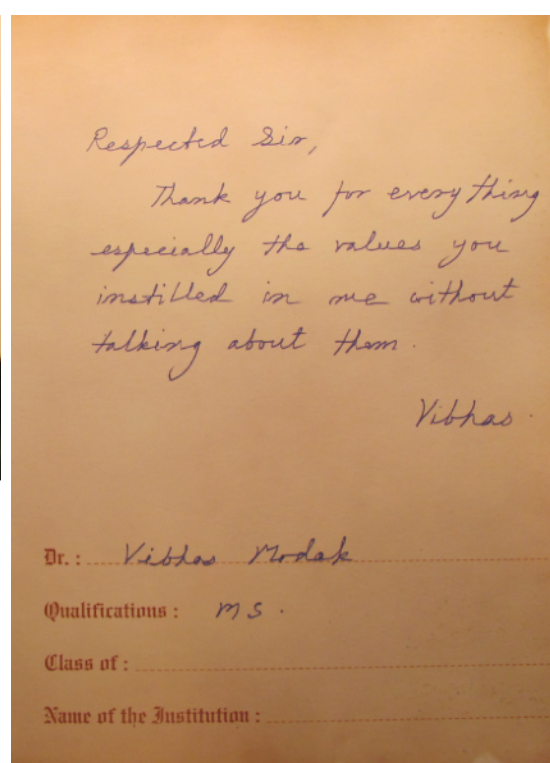 Respected Sir,
Thank you for every thing
especially the values you
instilled in me without
talking about them.
Vibhas.
Dr. : Vibhas Modak
Qualifications : MS.
Class of :
Name of the Institution :